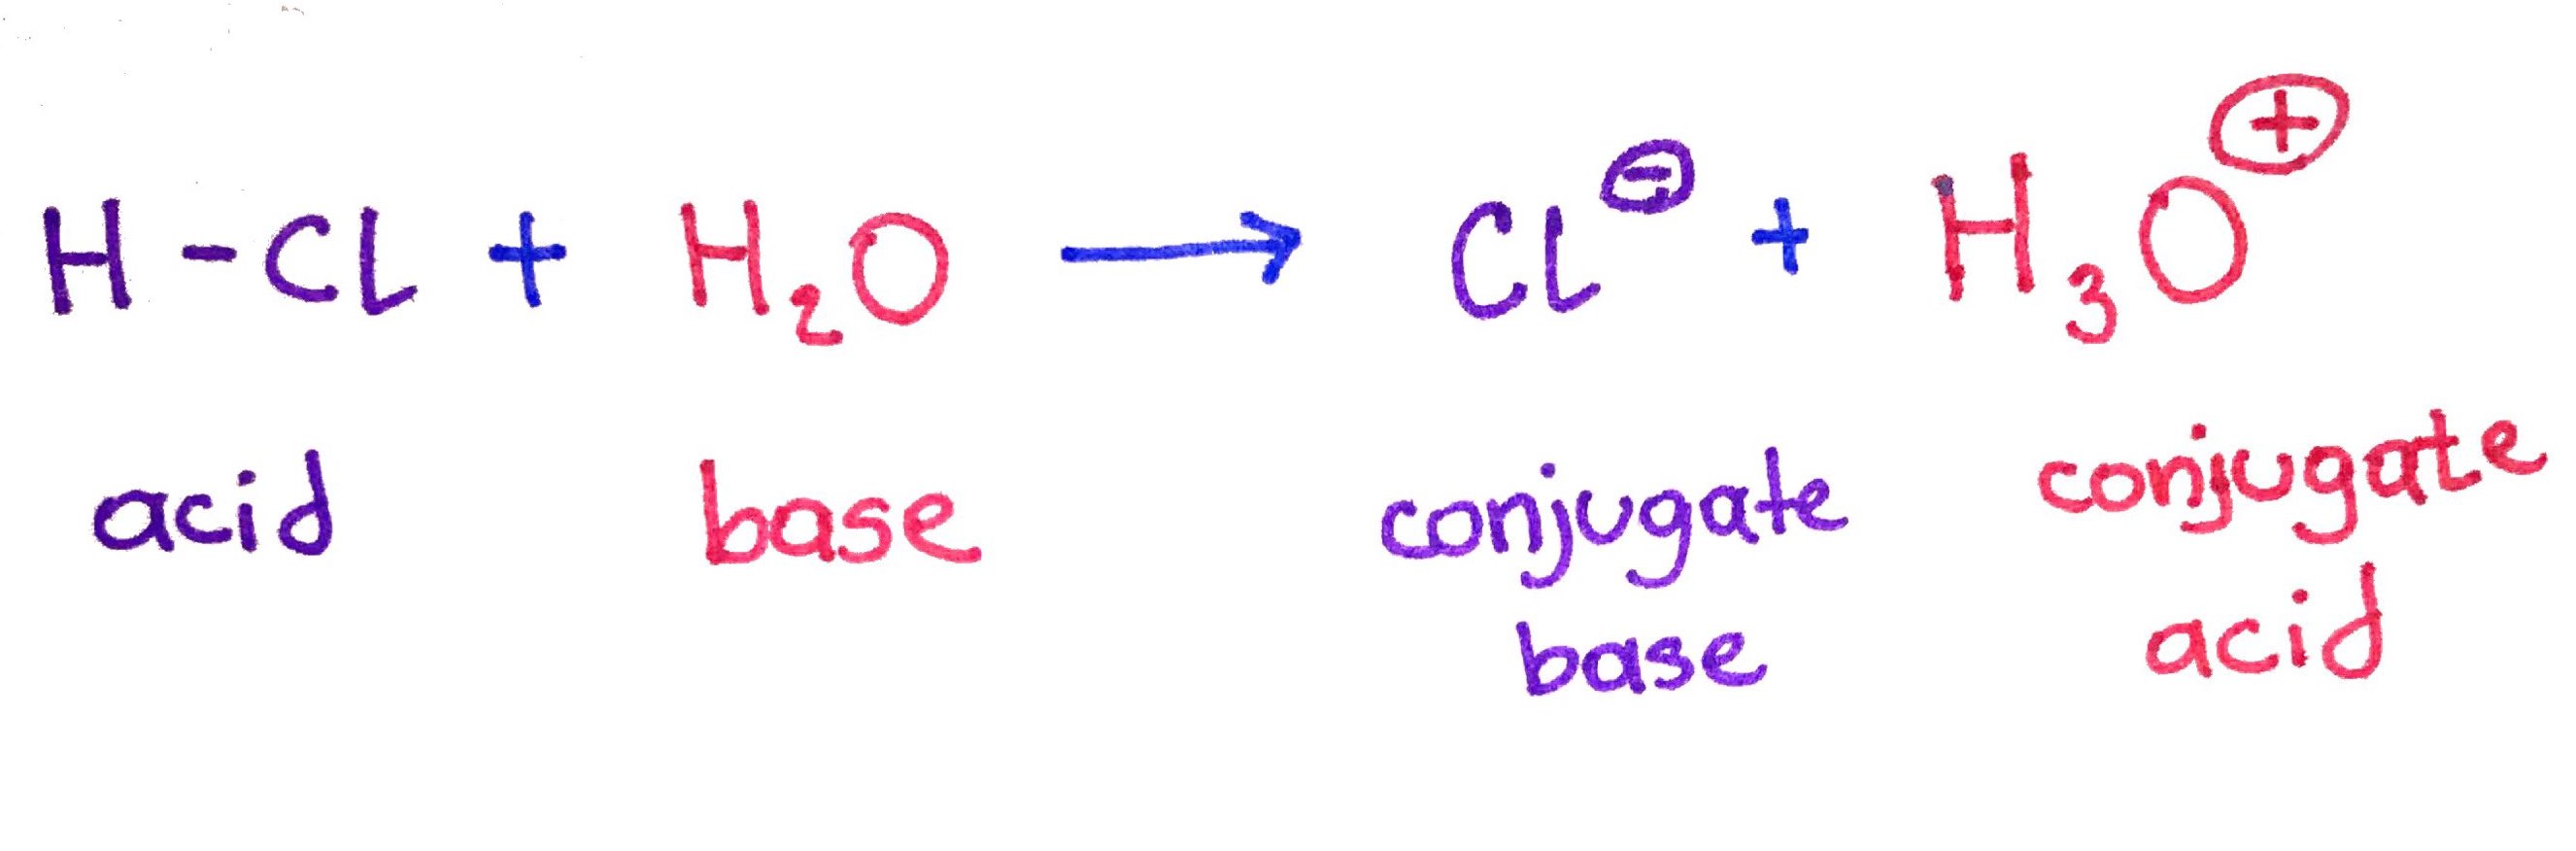 H - Cl + H₂O ⟶ Cl⊖ + H₃O⊕
acid base conjugate base conjugate acid